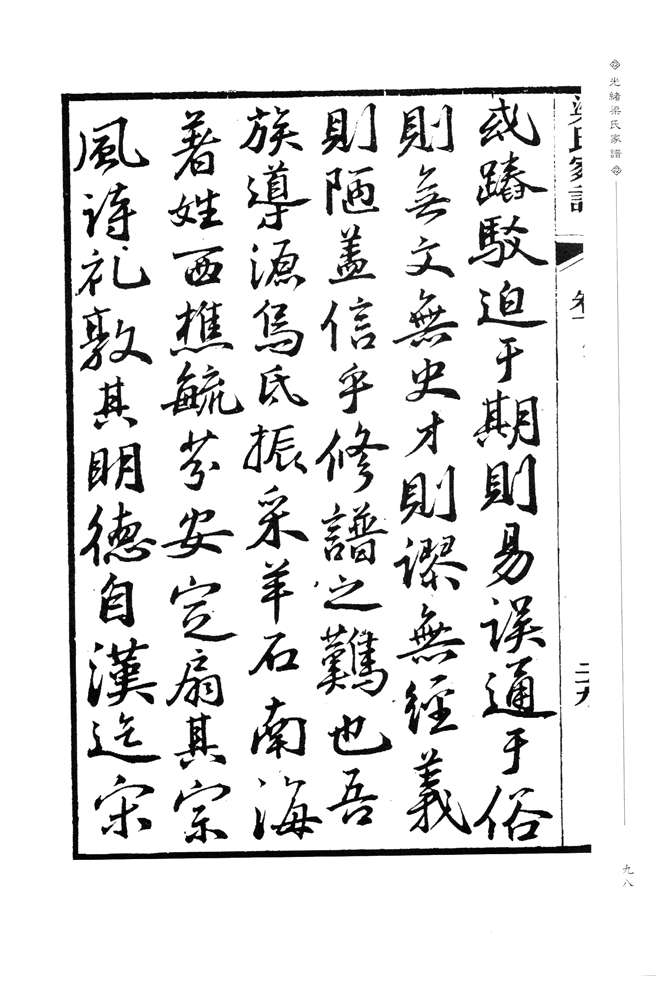 光緒梁氏家譜
梁氏家譜
卷一
二十九
或踳駁迫于期則易誤通于俗
則無文無史才則謬無經義
則陋蓋信乎修譜之難也吾
族導源烏氏振采羊石南海
著姓西樵毓芬安定扇其宗
風詩礼敦其明德自漢迄宋
九八